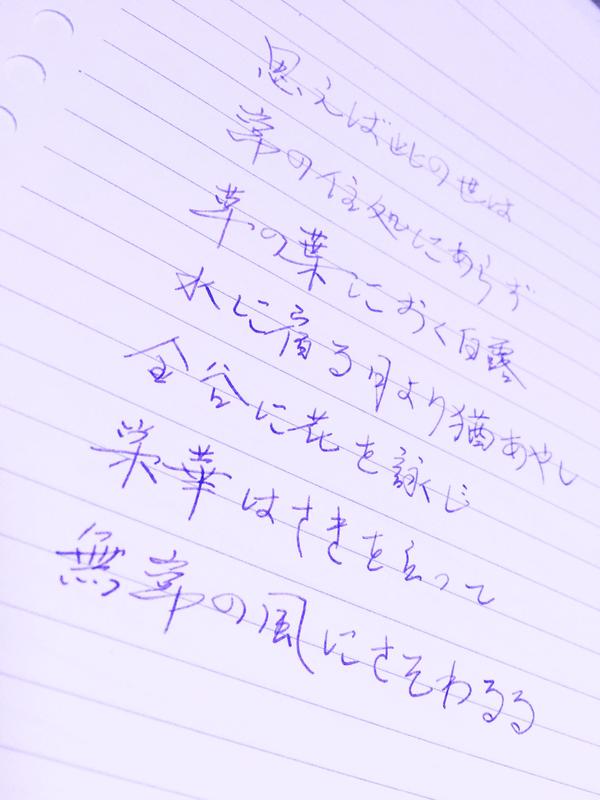 思えば此の世は
常の住処にあらず
草の葉におく白露
水に宿る月より猶あやし
金谷に花を詠じ
栄華はさきを立って
無常の風にさそわるる